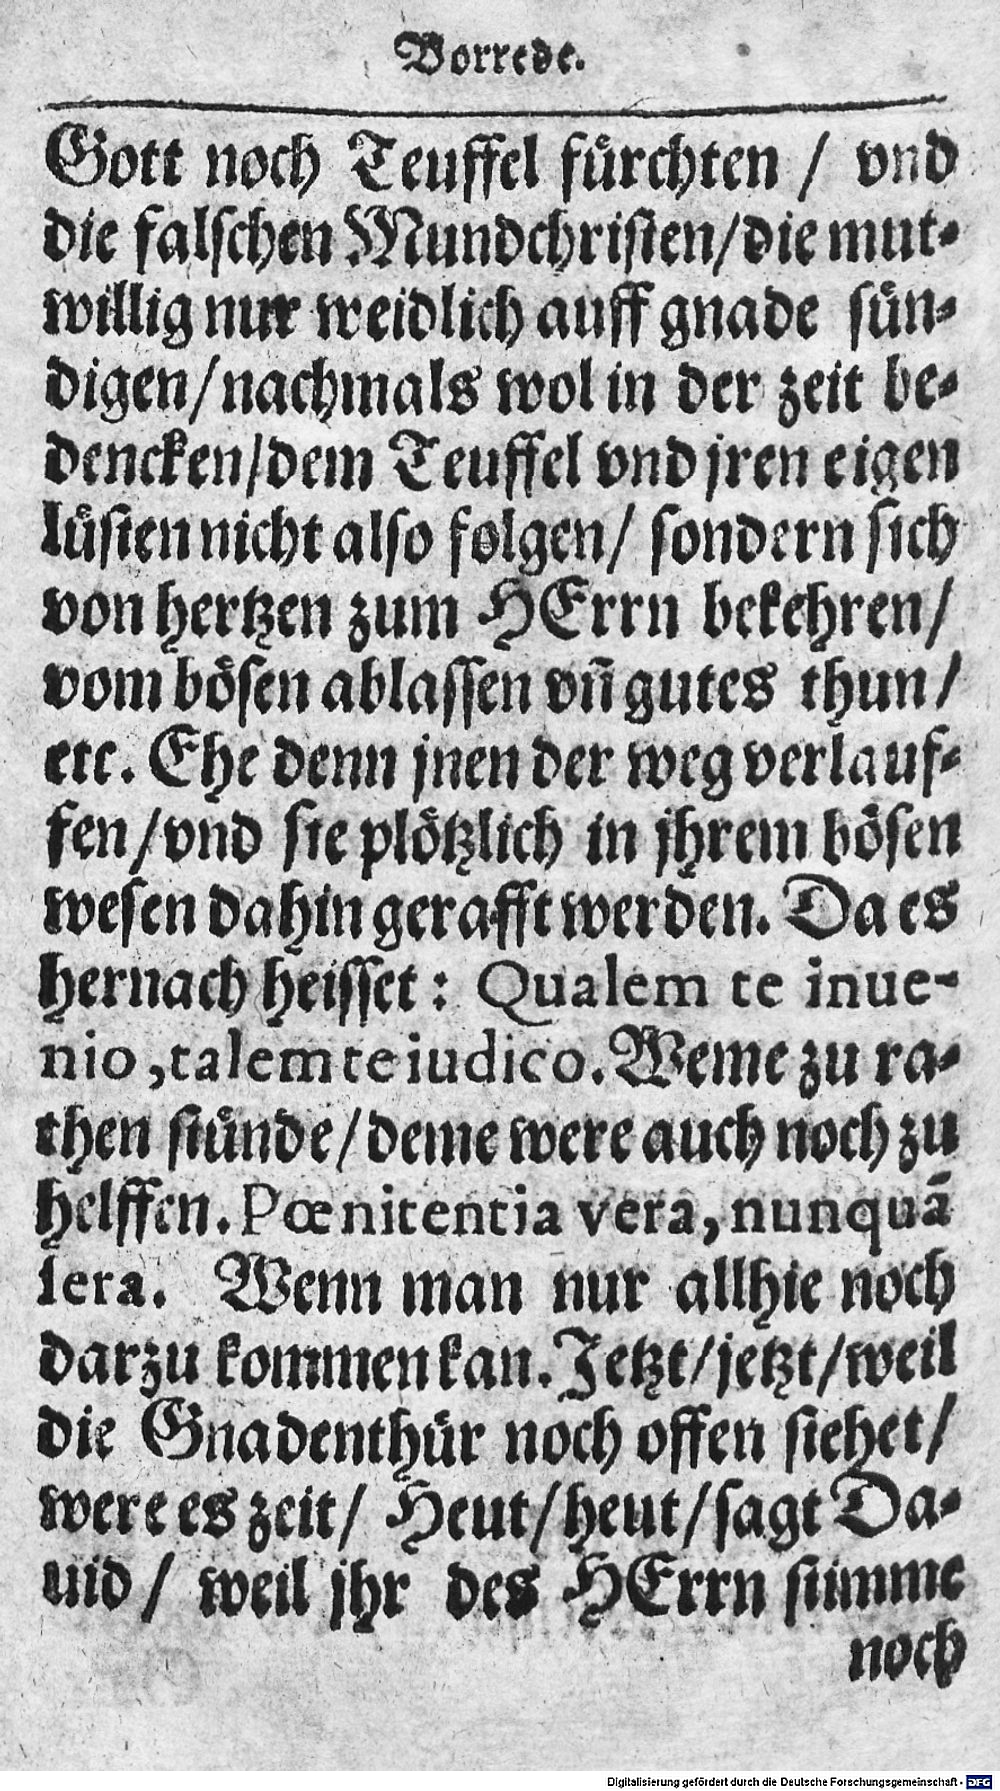 Vorrede.
Gott noch Teuffel fürchten / vnd
die falschen Mundchristen/die mut-
willig nur weidlich auff gnade sün-
digen/nachmals wol in der zeit be-
dencken/dem Teuffel vnd jren eigen
lüsten nicht also folgen/ sondern sich
von hertzen zum HErrn bekehren/
vom bösen ablassen vñ gutes thun/
etc. Ehe denn jnen der weg verlauf-
fen/vnd sie plötzlich in jhrem bösen
wesen dahin gerafft werden. Da es
hernach heisset: Qualem te inue-
nio, talem te iudico. Weme zu ra-
then stünde/deme were auch noch zu
helffen. Pœnitentia vera, nunquã
sera. Wenn man nur allhie noch
darzu kommen kan. Jetzt/jetzt/weil
die Gnadenthür noch offen stehet/
were es zeit/ Heut/heut/sagt Da-
uid/ weil jhr des HErrn stimme
noch
Digitalisierung gefördert durch die Deutsche Forschungsgemeinschaft - DFG